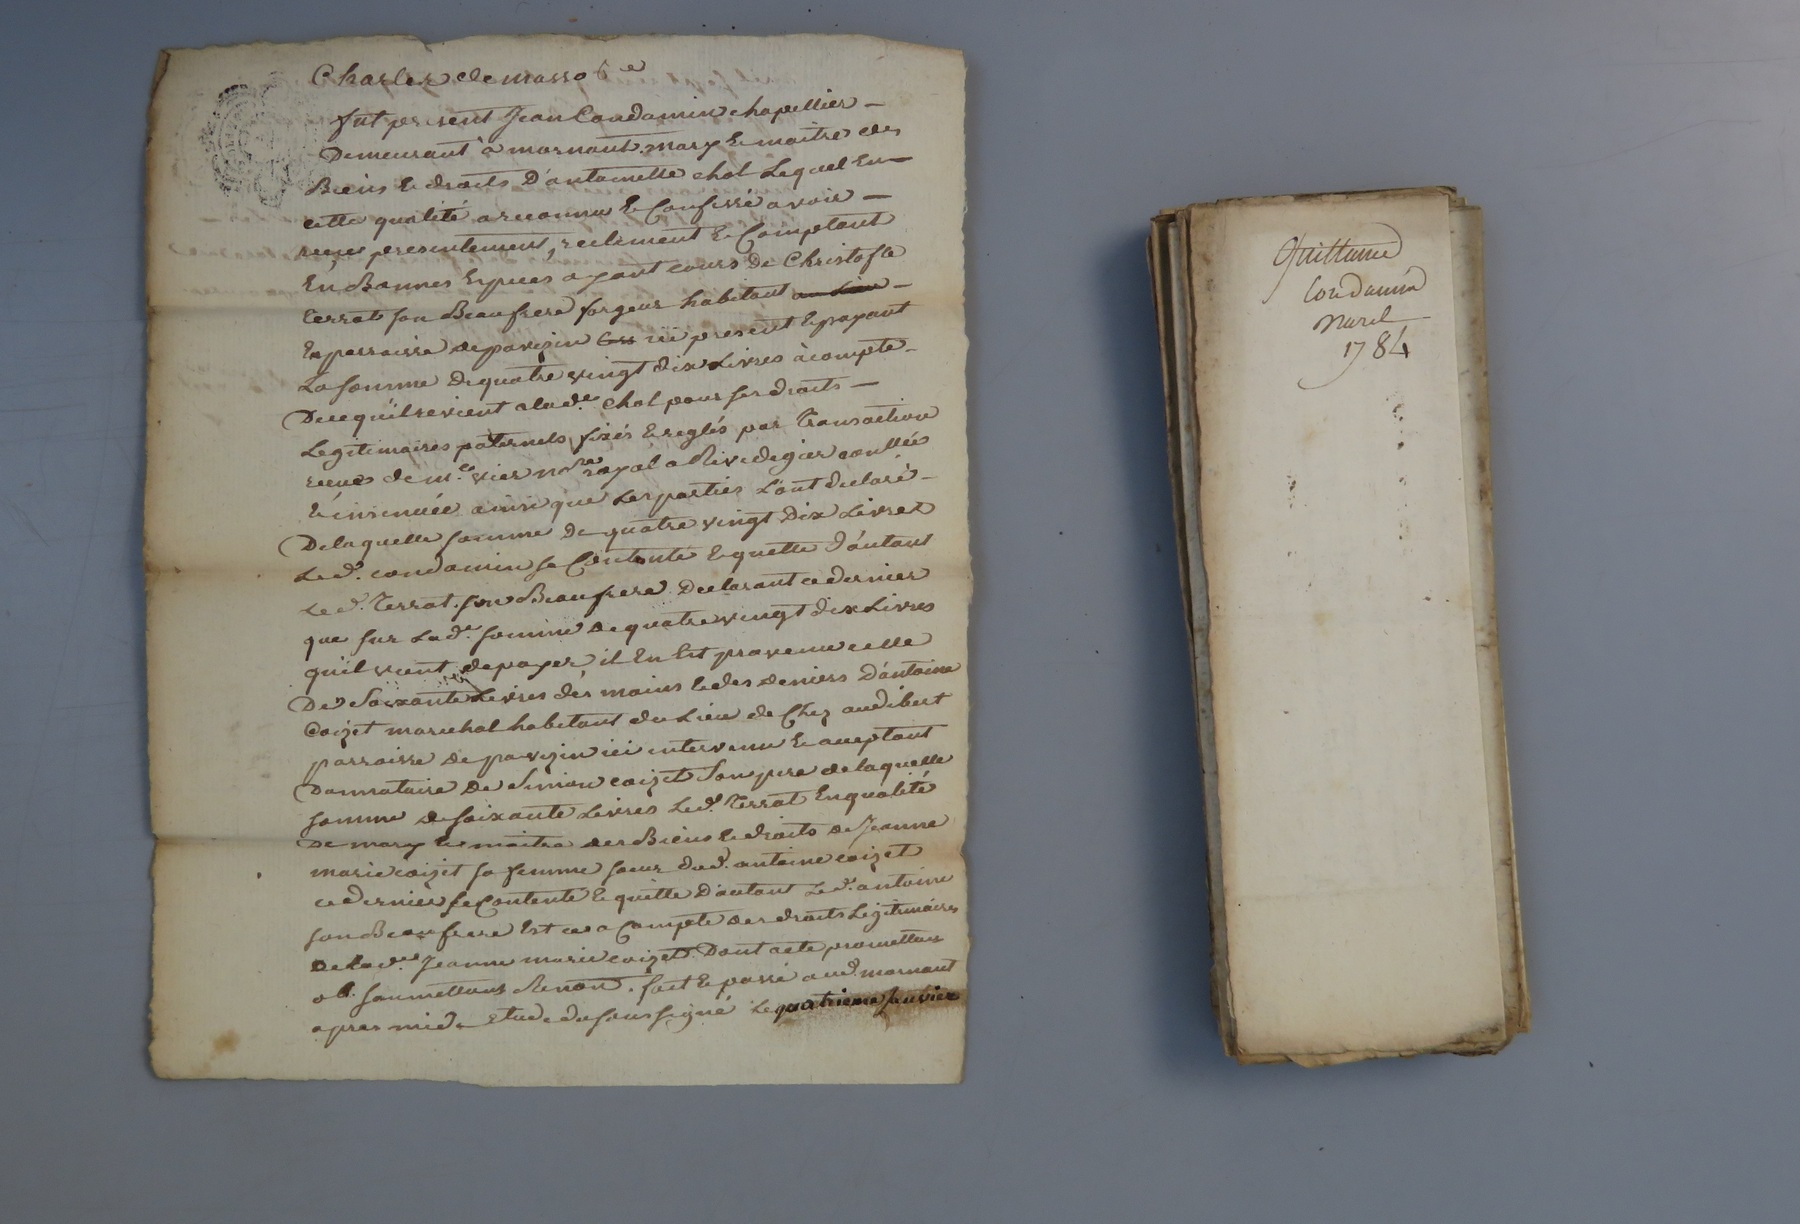 Charles demasso 6e
fut present Jean Condamin chapellier
Demeurant a mornant mary & maitre des
Biens & droits D'antoinette chol Lequel En
cette qualité a reconnu & Confessé avoir
reçu presentement, reelement & Comptant
En Bonnes Especes ayant cours De Christofle
terrat son Beaufrere forgeur habitant au Lieu
En parroisse de pavezin ici present & payant
La somme De quatre vingt dix Livres à compte
De ce qu'il revient a lade. chol pour ses droits
Legitimaires paternels fixés & reglés par Transaction
recue de me. vier nore royal a Rivedegier conllée
& insinuée ainsi que Les parties L'ont declaré
De laquelle somme De quatre vingt Dix Livres
Led. condamin se Contente & quitte d'autant
Led. Terrat son Beaufrere Declarant ce dernier
que sur Lade. somme De quatre vingt dix Livres
qu'il vient de payer il En Est provenu celle
De Soixante Livres des mains & des deniers D'antoine
Coizet marechal habitant du Lieu de Chez audibert
parroisse de pavezin ici intervenu & acceptant
Donnataire De Simon coizet son pere de laquelle
somme de soixante Livres Led. Terrat En qualité
De mary & maitre des Biens & droits de Jeanne
marie coizet sa femme soeur dud. antoine coizet
ce dernier se Contente & quitte D'autant Led. antoine
son Beaufrere Est ce a Compte des droits Legitimaires
De lade. Jeanne marie coizet. Dont acte promettans
ob. soumettans Renon. fait & passé aud. mornant
apres midi Etude du soussigné Le quatrieme Janvier
Quittance
Condamin
1784